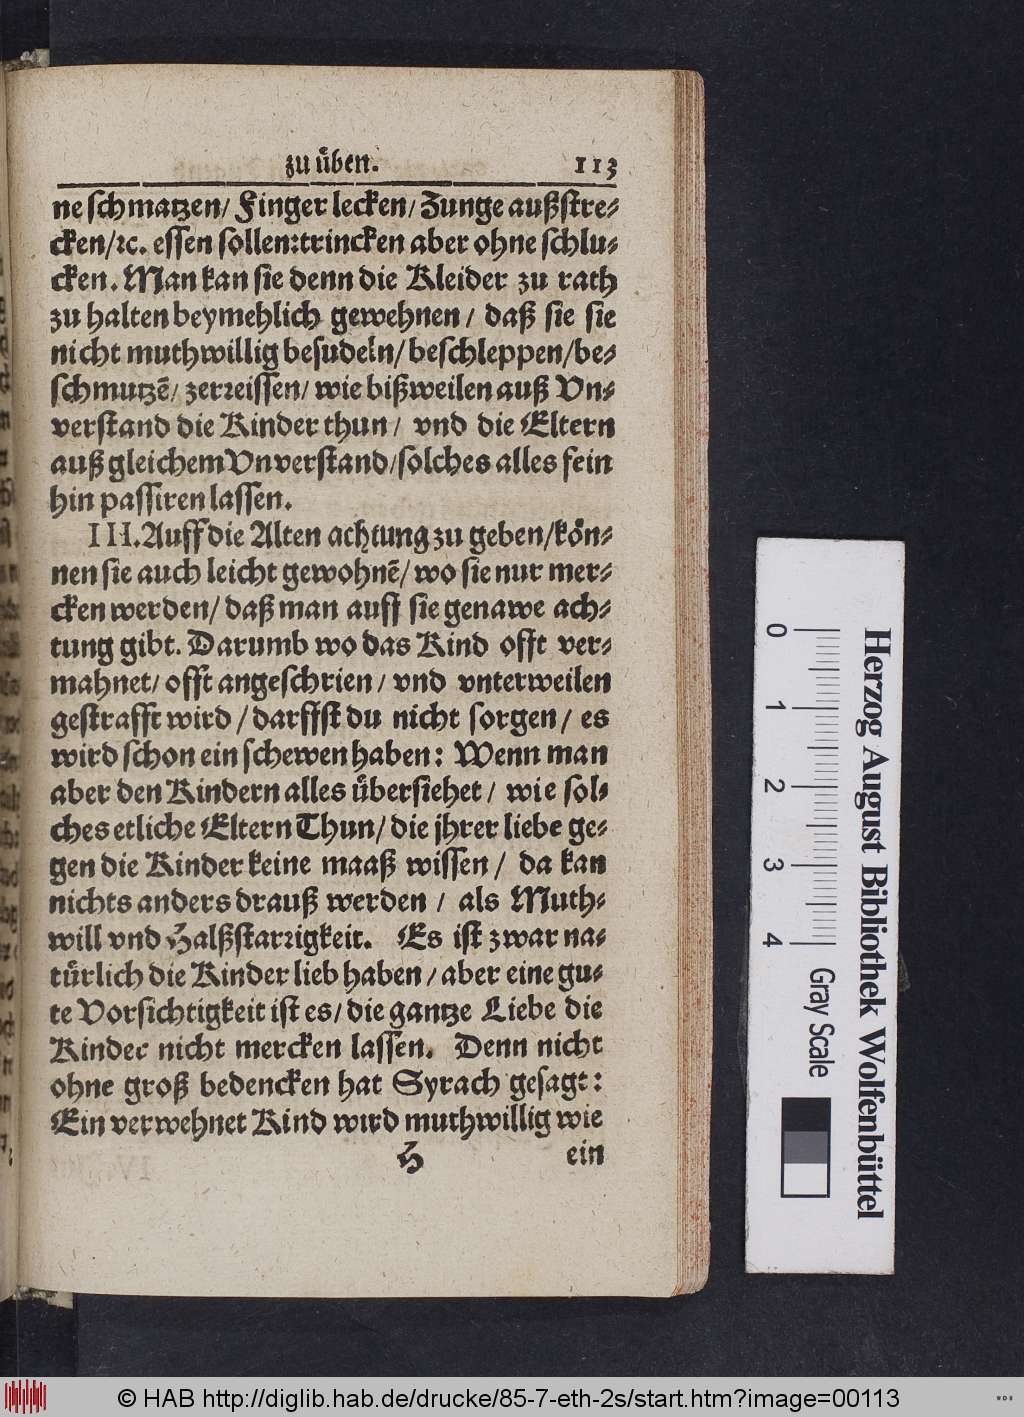 zu üben. 113
ne schmatzen/ Finger lecken/ Zunge außstre-
cken/ ꝛc. essen sollen: trincken aber ohne schlu-
cken. Man kan sie denn die Kleider zu rath
zu halten beymehlich gewehnen/ daß sie sie
nicht muthwillig besudeln/ beschleppen/ be-
schmutzē/ zerreissen/ wie bißweilen auß Vn-
verstand die Kinder thun/ vnd die Eltern
auß gleichem Vnverstand/ solches alles fein
hin passiren lassen.
III. Auff die Alten achtung zu geben/ kön-
nen sie auch leicht gewohnē/ wo sie nur mer-
cken werden/ daß man auff sie genawe ach-
tung gibt. Darumb wo das Kind offt ver-
mahnet/ offt angeschrien/ vnd vnterweilen
gestrafft wird/ darffst du nicht sorgen/ es
wird schon ein schewen haben: Wenn man
aber den Kindern alles übersiehet/ wie sol-
ches etliche Eltern Thun/ die jhrer liebe ge-
gen die Kinder keine maaß wissen/ da kan
nichts anders drauß werden/ als Muth-
will vnd Halßstarrigkeit. Es ist zwar na-
türlich die Kinder lieb haben/ aber eine gu-
te Vorsichtigkeit ist es/ die gantze Liebe die
Kinder nicht mercken lassen. Denn nicht
ohne groß bedencken hat Syrach gesagt:
Ein verwehnet Kind wird muthwillig wie
H ein
0 1 2 3 4 Gray Scale
Herzog August Bibliothek Wolfenbüttel
© HAB http://diglib.hab.de/drucke/85-7-eth-2s/start.htm?image=00113